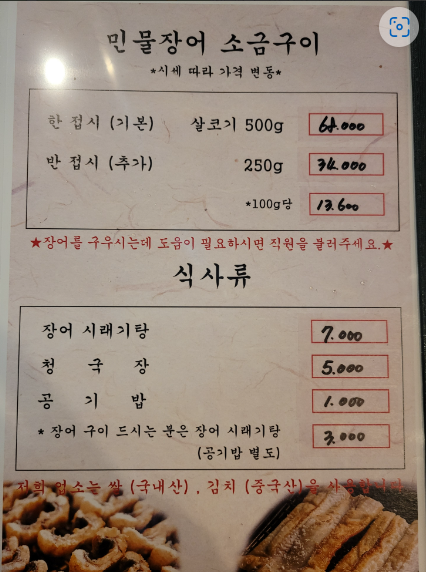 민물장어 소금구이
*시세 따라 가격 변동*
한 접시 (기본) 살코기 500g 68.000
반 접시 (추가) 250g 34.000
*100g당 13.600
★장어를 구우시는데 도움이 필요하시면 직원을 불러주세요.★
식사류
장어 시래기탕 7.000
청 국 장 5.000
공 기 밥 1.000
* 장어 구이 드시는 분은 장어 시래기탕 3.000
(공기밥 별도)
저희 업소는 쌀 (국내산) , 김치 (중국산)을 사용합니다